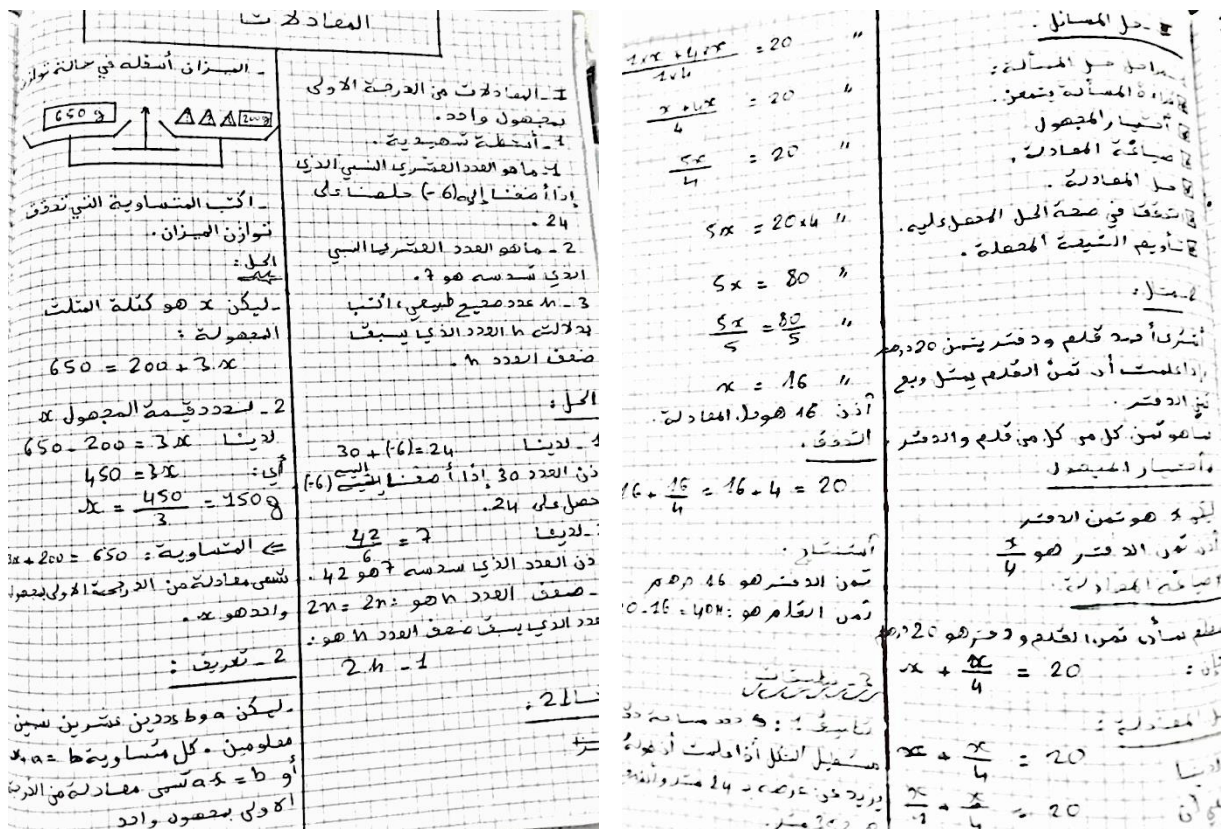 المعادلات
I- المعادلات من الدرجة الاولى
بمجهول واحد.
1- أنشطة تمهيدية.
1- ما هو العدد العشري النسبي الذي
إذا أضفنا إليه (6-) حصلنا على
24.
2- ماهو العدد العشري النسبي
الذي سدسه هو 7.
3- n عدد صحيح طبيعي، اكتب
بدلالة n العدد الذي يسبق
ضعف العدد n.
الحل:
1- لدينا 30 + (-6) = 24
ذن العدد 30 إذا أضفنا إليه (6-)
حصل على 24.
- لدينا 42/6 = 7
ذن العدد الذي سدسه 7 هو 42.
- ضعف العدد n هو: 2n = 2n
عدد الذي يسبق ضعف العدد n هو:
2n - 1
- الميزان أسفله في حالة توازن
650 g 200g
- اكتب المتساوية التي تحقق
توازن الميزان.
الحل:
- ليكن x هو كتلة المثلث
المجهولة:
650 = 200 + 3x
2- لنحدد قيمة المجهول x
لدينا 650 - 200 = 3x
أي: 450 = 3x
x = 450/3 = 150g
⇐ المتساوية: 3x + 200 = 650
تسمى معادلة من الدرجة الاولى بمجهول
واحد هو x.
2- تعريف:
- ليكن a و b عددين عشريين نسبيين
معلومين. كل متساوية x+a = b
أو ax = b تسمى معادلة من الدرجة
الاولى بمجهول واحد
II- حل المسائل.
مراحل حل المسألة:
قراءة المسألة بتمعن.
اختيار المجهول
صياغة المعادلة.
حل المعادلة.
التحقق في صحة الحل المحصل عليه.
تأويم النتيجة المحصلة.
2- مثال:
أشترى أحمد قلم ودفتر بثمن 20 درهم
إذا علمت أن ثمن القلم يمثل ربع
ثمن الدفتر.
ماهو ثمن كل من كل من قلم والدفتر.
أختيار المجهول
ليكن x هو ثمن الدفتر
أذن ثمن الدفتر هو x/4
صياغة المعادلة.
نعلم بأن ثمن القلم ودفتر هو 20 درهم
فإن: x + x/4 = 20
حل المعادلة:
لدينا x + x/4 = 20
يعني أن x/1 + x/4 = 20
" 1×x + 4×x / 1×4 = 20
" x + 4x / 4 = 20
" 5x/4 = 20
" 5x = 20×4
" 5x = 80
" 5x/5 = 80/5
" x = 16
أذن 16 هو حل المعادلة.
التحقق.
16 + 16/4 = 16 + 4 = 20
أستنتاج.
ثمن الدفتر هو 16 درهم
ثمن القلم هو: 20-16 = 4DH
3- تطبيقات
مستطيل الشكل أذا علمت أن طوله
يزيد عن عرضه بـ 24 متر